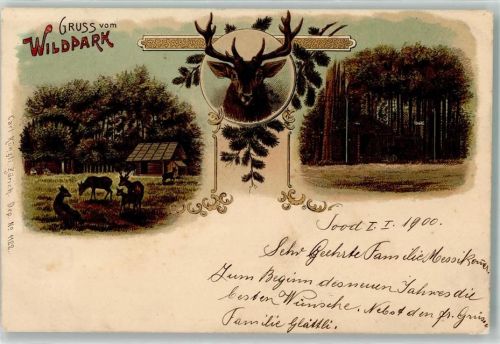 GRUSS vom
WILDPARK
Carl Künzli, Zürich, Dep. No. 1122.
Sood I. I. 1900.
Sehr Geehrte Familie
Zum Beginn des neuen Jahres die
besten Wünsche. Nebst den fr. Grüs.
Familie Glättli.